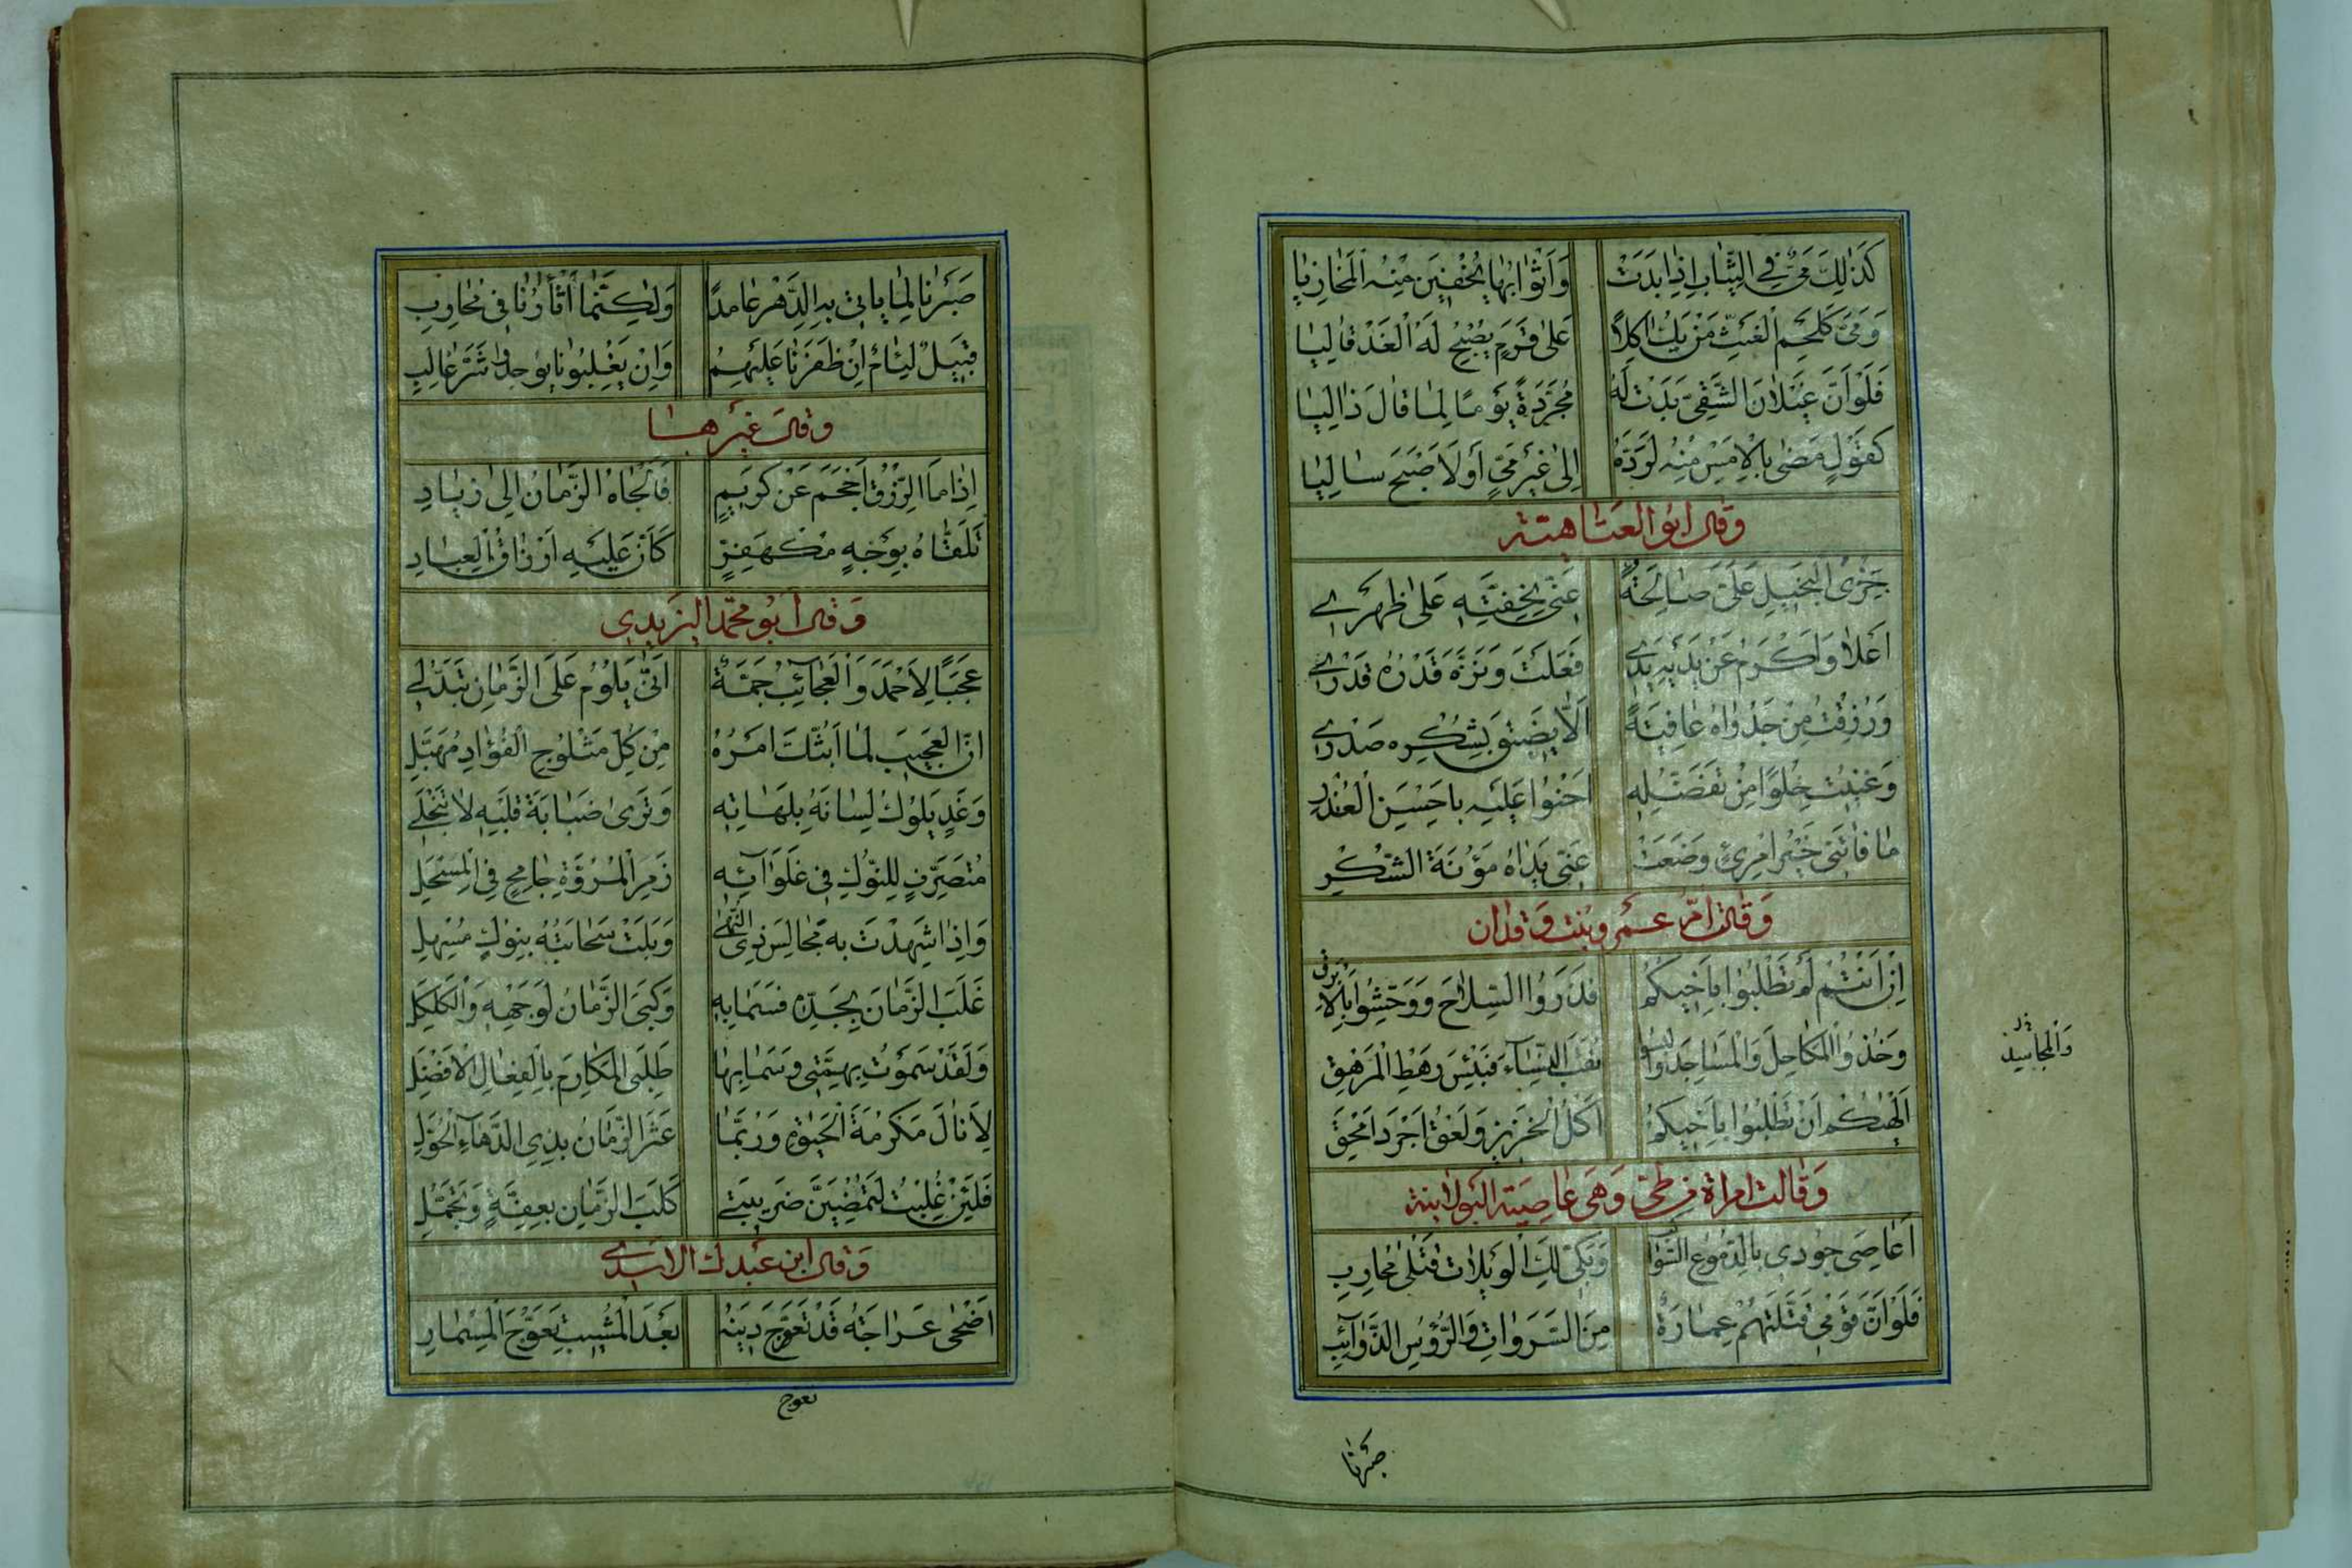 كَذٰلِكَ مَيٌّ فِي الثِّيَابِ اِذَا بَدَتْ وَاَثْوَابُهَا يُخْفِيْنَ مِنْهُ الْمَخَازِيَا
وَمَيٌّ كَلَحْمِ الْغَثِّ مَنْ يَكُ اٰكِلًا عَلٰى قَرَمٍ يُصْبِحْ لَهُ الْغَدْ قَالِيَا
فَلَوْ اَنَّ غَيْلَانَ الشَّقِيَّ بَدَتْ لَهُ مُجَرَّدَةً يَوْمًا لِمَا قَالَ ذَالِيَا
كَقَوْلٍ مَضٰى بِالْاَمْسِ مِنْهُ لَوَدَّهُ اِلٰى غَيْرِ مَيٍّ اَوْ لَاَصْبَحَ سَالِيَا
وقال ابو العتاهية
جُزِيَ الْبَخِيْلُ عَلَيَّ صَالِحَةً عَنِّي بِخِفَّتِهٖ عَلٰى ظَهْرِي
اَعْلَا وَاَكْرَمُ عَنْ يَدَيْهِ يَدِي فَعَلَتْ وَنَزَّهَ قَدْرُهُ قَدْرِي
وَرُزِقْتُ مِنْ جَدْوَاهُ عَافِيَةً اَلَّا يَضِيْقَ بِشُكْرِهٖ صَدْرِي
وَغَنِيْتُ خِلْوًا مِنْ تَفَضُّلِهٖ اَحْنُوا عَلَيْهِ بِاَحْسَنِ الْعُذْرِ
مَا فَاتَنِي خَيْرُ امْرِئٍ وَضَعَتْ عَنِّي يَدَاهُ مَؤُنَةَ الشُّكْرِ
وَقالت امّ عمرو بنت وقدان
اِنْ اَنْتُمْ لَمْ تَطْلُبُوا بِاَخِيْكُمْ فَذَرُوا السِّلَاحَ وَوَحِّشُوا بِالْاَبْرَقِ
وَخُذُوا الْمَكَاحِلَ وَالْمَسَاجِدَ وَالْبَسُوا نُقَبَ النِّسَاءِ فَبِئْسَ رَهْطِ الْمُرْهِقِ
وَالْمجاسيد
اَلْهٰيكُمْ اَنْ تَطْلُبُوا بِاَخِيْكُمُ اَكْلُ الْخَزِيْرِ وَلَعْقُ اَجْرَدَ اَمْحَقِ
وَقالت امراة من طيّ وَهي عاصية البولانية
اَعَاصِيَ جُودِي بِالدُّمُوعِ السَّوَاكِبِ وَبَكِّي لَكِ الْوَيْلَاتُ قَتْلٰى مُحَارِبِ
فَلَوْ اَنَّ قَوْمِي قَتَّلَتْهُمْ عِمَارَةٌ مِنَ السَّرَوَاتِ وَالرُّؤُسِ الذَّوَائِبِ
صَبَرْنَا
صَبَرْنَا لِمَا يَاْتِي بِهِ الدَّهْرُ عَامِدًا وَلٰكِنَّمَا اَثْاٰرُنَا فِي مُحَارِبِ
قَبِيْلٌ لِئَامٌ اِنْ ظَفَرْنَا عَلَيْهِمُ وَاِنْ يَغْلِبُونَا يُوجَدُوا شَرَّ غَالِبِ
وقال غيرها
اِذَا مَا الرِّزْقُ اَحْجَمَ عَنْ كَرِيْمٍ فَاَلْجَاهُ الزَّمَانُ اِلٰى زِيَادِ
تَلَقَّاهُ بِوَجْهٍ مُكْفَهِرٍّ كَاَنَّ عَلَيْهِ اَرْزَاقَ الْعِبَادِ
وَقال ابو محمّد اليزيدي
عَجَبًا لِاَحْمَدَ وَالْعَجَائِبُ جَمَّةٌ اَنّٰى يَلُوْمُ عَلَى الزَّمَانِ تَبَذُّلِي
اِنَّ الْعَجِيْبَ لَمَا اُبِثُّكَ اَمْرُهُ مِنْ كُلِّ مَثْلُوْجِ الْفُؤَادِ مُهَبَّلِ
وَغَدٍ يَلُوْكُ لِسَانَهُ بِلَهَاتِهٖ وَتَرٰى ضَبَابَةَ قَلْبِهٖ لَا تَنْجَلِي
مُتَصَرِّفٍ لِلنُّوْكِ فِي غَلَوَائِهٖ زَمِرِ الْمُرُوَّةِ جَامِحٍ فِي الْمِسْحَلِ
وَاِذَا شَهِدْتَ بِهٖ مَجَالِسَ ذِي النُّهٰى وَبَلَتْ سَحَابَتُهُ بِنُوْكٍ مُسْهِلِ
غَلَبَ الزَّمَانَ بِجَدِّهٖ فَسَمَا بِهٖ وَكَبَى الزَّمَانُ لِوَجْهِهٖ وَالْكَلْكَلِ
وَلَقَدْ سَمَوْتُ بِهِمَّتِي وَسَمَا بِهَا طَلَبِي الْمَكَارِمَ بِالْفِعَالِ الْاَفْضَلِ
لِاَنَالَ مَكْرُمَةَ الْحَيٰوةِ وَرُبَّمَا عَثَرَ الزَّمَانُ بِذِي الدَّهَاءِ الْحُوَّلِ
فَلَئِنْ غُلِبْتُ لَتَمْضِيَنَّ ضَرِيْبَتِي كَلَبَ الزَّمَانِ بِعِفَّةٍ وَتَجَمُّلِ
وَقال ابن عبدل الاسدي
اَضْحٰى عَرَاجَةُ قَدْ تَعَوَّجَ دِيْنُهُ بَعْدَ الْمَشِيْبِ تَعَوُّجَ الْمِسْمَارِ
تعوج